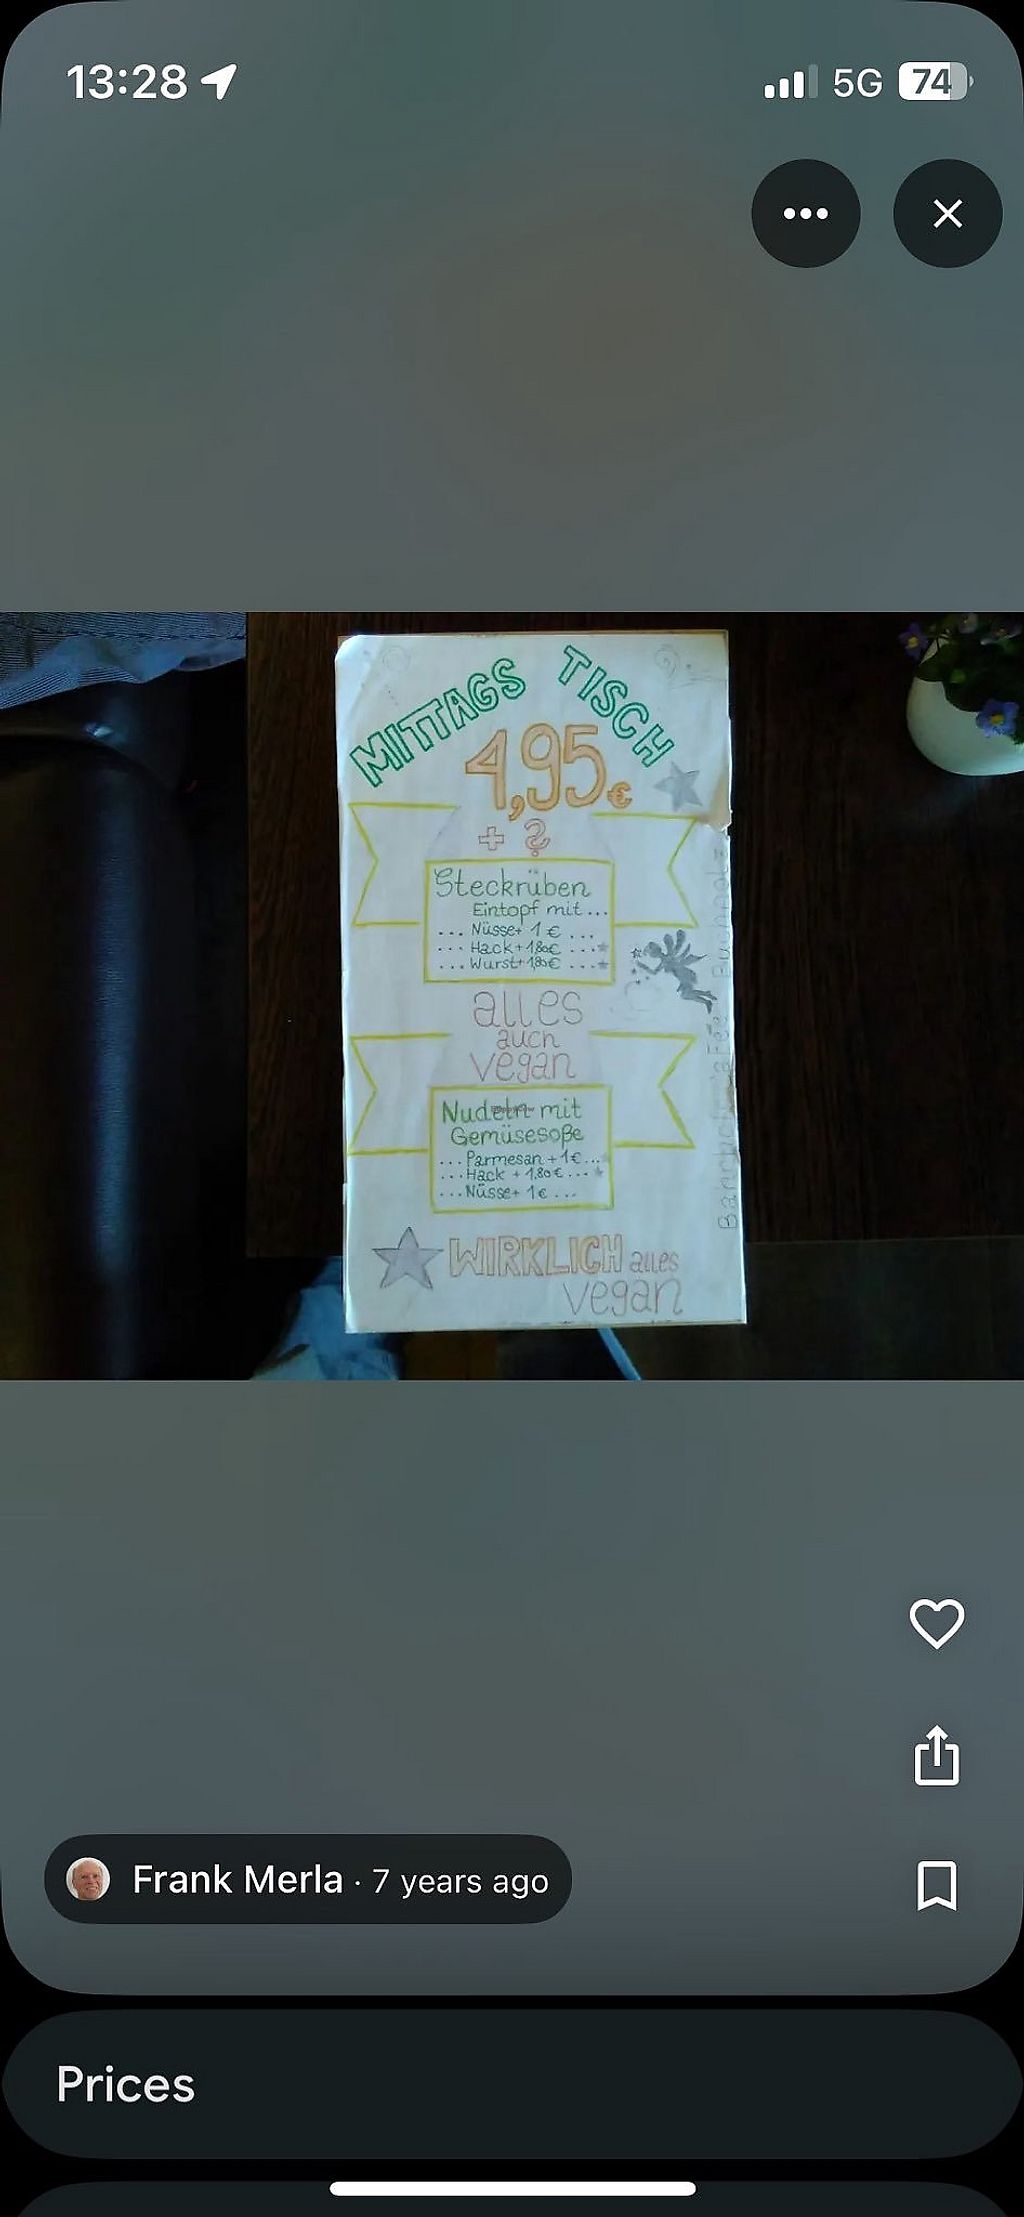 13:28
5G
74
MITTAGS TISCH
4,95€
+ ?
Steckrüben
Eintopf mit...
... Nüsse+ 1 € ...
... Hack+ 1,80€ ...
... Wurst+ 1,80€ ...
alles
auch
vegan
Nudeln mit
Gemüsesoße
... Parmesan + 1€...
... Hack + 1,80€ ...
... Nüsse+ 1€ ...
WIRKLICH alles
vegan
Frank Merla · 7 years ago
Prices